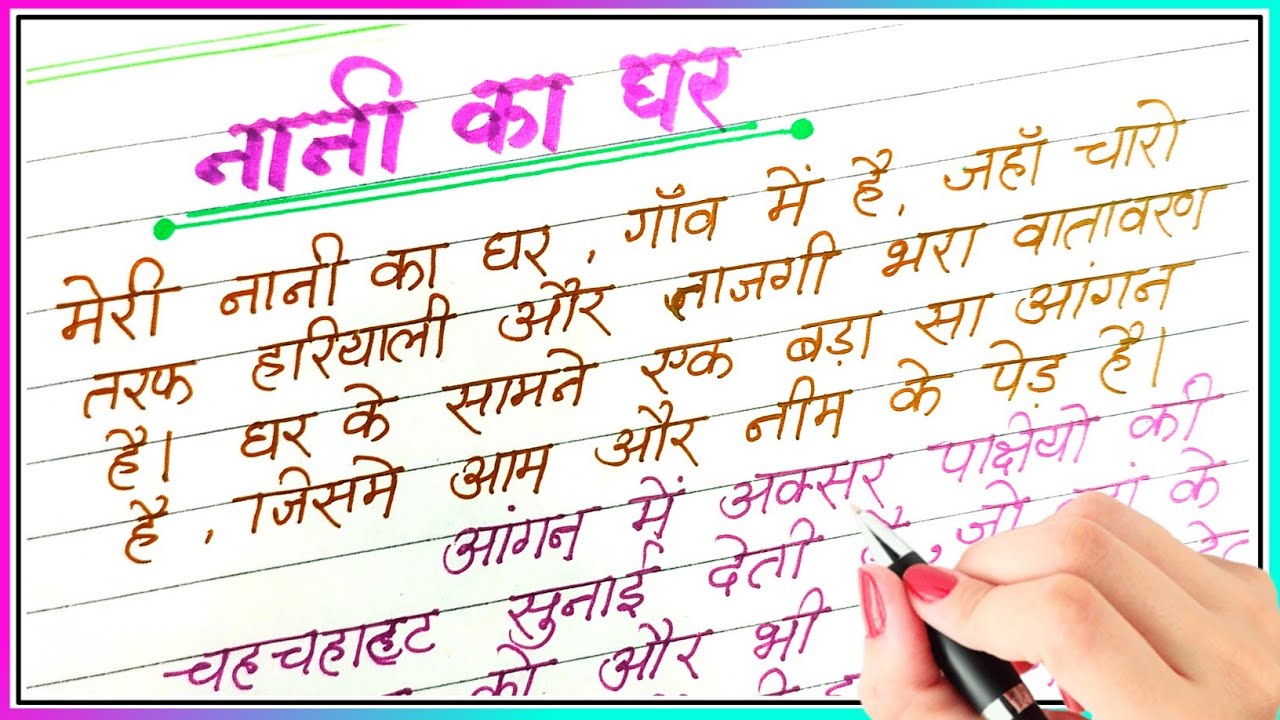 नानी का घर
मेरी नानी का घर, गाँव में है, जहाँ चारो
तरफ हरियाली और ताजगी भरा वातावरण
है। घर के सामने एक बड़ा सा आंगन
है, जिसमे आम और नीम के पेड़ है।
आंगन में अक्सर पक्षियो की
चहचहाहट सुनाई देती है, जो के
को और भी